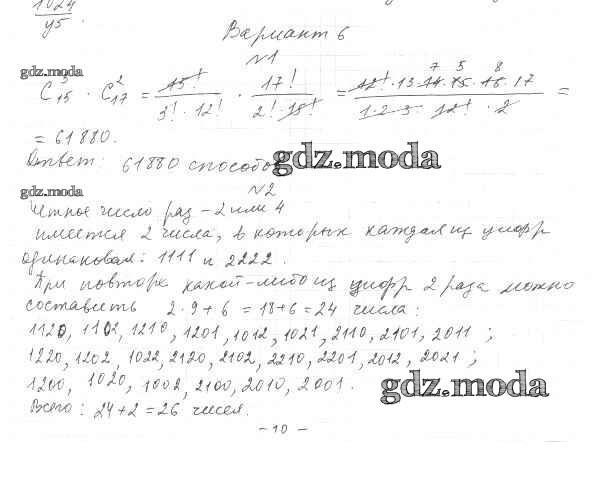 1024
45.
Вариант 6
№1
gdz.moda
C³₁₅ · C²₁₇ = 15!/(3! · 12!) · 17!/(2! · 15!) = (12! · 13 · 14 · 15 · 16 · 17)/(1 · 2 · 3 · 12! · 2) =
7 5 8
= 61880.
Ответ: 61880 способов
gdz.moda
gdz.moda
№2
Четное число раз – 2 или 4
имеется 2 числа, в которых каждая из цифр
одинаковая: 1111 и 2222.
При повторе какой-либо из цифр 2 раза можно
составить 2 · 9 + 6 = 18 + 6 = 24 числа:
1120, 1102, 1210, 1201, 1012, 1021, 2110, 2101, 2011 ;
1220, 1202, 1022, 2120, 2102, 2210, 2201, 2012, 2021 ;
1200, 1020, 1002, 2100, 2010, 2001.
gdz.moda
Всего: 24 + 2 = 26 чисел.
– 10 –